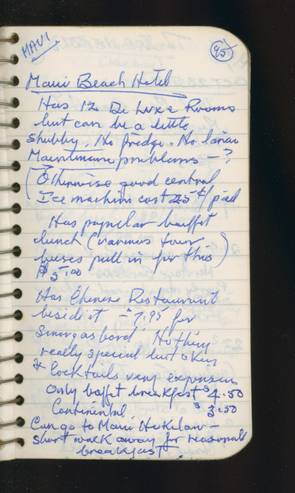 MAUI
95
Maui Beach Hotel
Has 12 De Luxe Rooms
but can be a little
shubby. No fredge. No lanai
Maintenance problems - ?
(Otherwise good central
Ice machine cost 25¢/pail
Has popular buffet
lunch (various tour)
buses pull in for this
$5.00
Has Chinese Restaurant
beside it - 7.95 for
Smorgasbord. Nothing
really special but okay
* Cocktails very expensive
Only buffet breakfast $4.50
Continental $3.50
Can go to Maui -
short walk away for reasonable
breakfast.